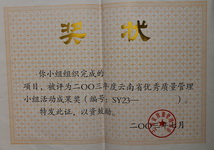 奖状
你小组组织完成的
项目、被评为二〇〇三年度云南省优秀质量管理
小组活动成果奖（编号：SY23— ）
特发此证，以资鼓励。
二〇〇 年 月